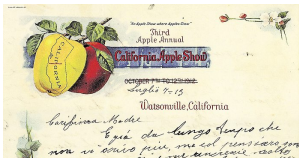 "An Apple Show where Apples Grow"
Third
Apple Annual
California Apple Show
CALIFORNIA
OCTOBER 7TH TO 12TH 1912
Luglio 7-13
Watsonville, California
Carissima Madre
E già da lungo tempo che
non vi scrivo più, ma col pensiero son